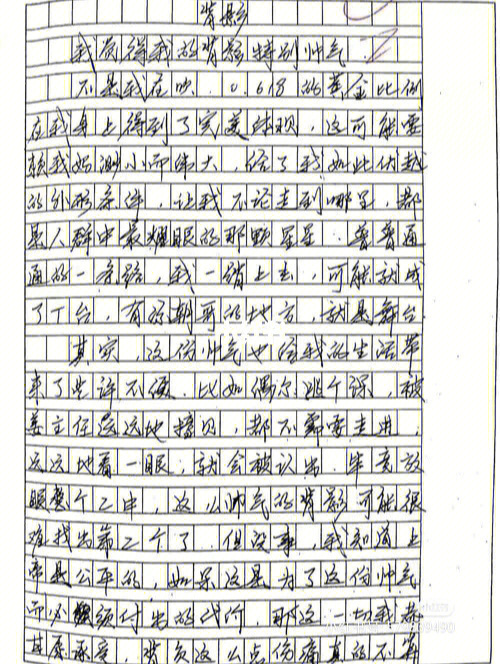 背影
我觉得我的背影特别帅气。
不是我在吹，0.618的黄金比例
在我身上得到了完美体现，这可能要
赖我妈渺小而伟大，给了我如此优越
的外形条件，让我不论走到哪里，都
是人群中最耀眼的那颗星星。普普通
通的一条路，我一踏上去，可能就成
了T台，有我朝哥的地方，就是舞台。
其实，这份帅气也给我的生活带
来了些许不便。比如偶尔逃个课，被
姜主任远远地撞见，都不需要走进，
远远地看一眼，就会被认出。毕竟放
眼整个乙中，这么帅气的背影可能很
难找出第二个了。但没事，我知道上
帝是公平的，如果这是为了这份帅气
而必须付出的代价，那这一切我都
其愿承受，背负这么点伤痛真的不算